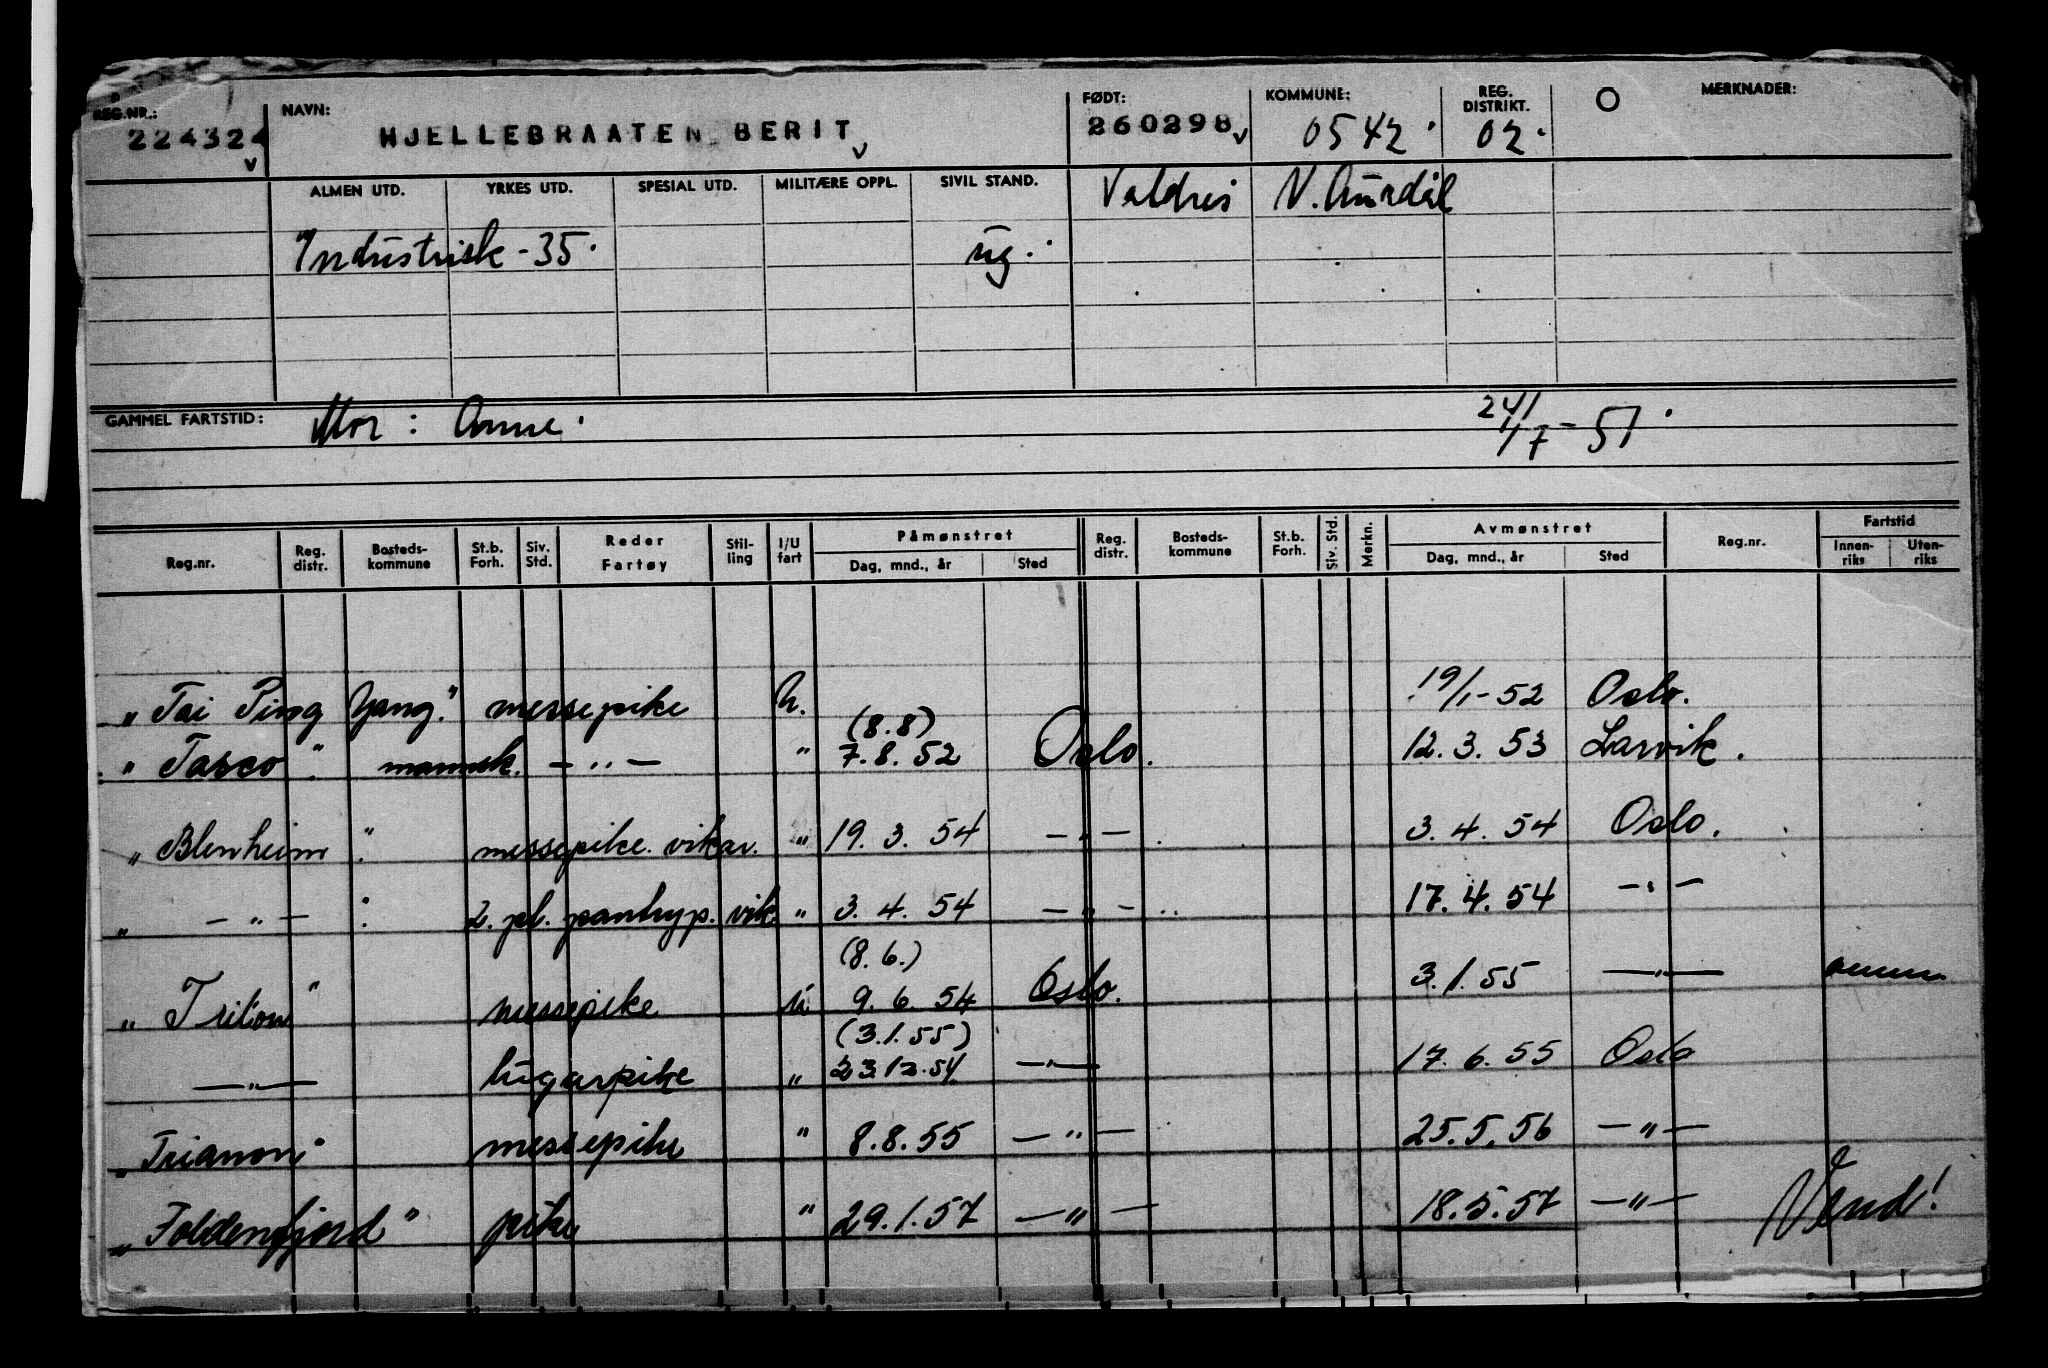 REG.NR.: NAVN: FØDT: KOMMUNE: REG. DISTRIKT. O MERKNADER:
224324 HJELLEBRAATEN, BERIT 260298 0542. 02.
ALMEN UTD. YRKES UTD. SPESIAL UTD. MILITÆRE OPPL. SIVIL STAND. Valdres N. Aurdal
Industrisk - 35. ug.
GAMMEL FARTSTID: Mor: Anne. 24/7-51.
Reg.nr. Reg. distr. Bosteds-kommune St.b. Forh. Siv. Std. Reder Fartøy Stil-ling I/U fart Påmønstret Dag, mnd., år Sted Reg. distr. Bosteds-kommune St.b. Forh. Siv. Std. Merkn. Avmønstret Dag, mnd., år Sted Reg.nr. Fartstid Innen-riks Uten-riks
"Tai Ping Yang." messepike u. 19/1-52 Oslo.
(8.8)
"Tasco". mannsk. -"- " 7.8.52 Oslo. 12.3.53 Larvik.
"Blenheim". messepike vikar. " 19.3.54 -"-. 3.4.54 Oslo.
" -"- : 2. pl. pantryp. vik. " 3.4.54 -"-.. 17.4.54 -"-
(8.6.)
"Triton" messepike u 9.6.54 Oslo. 3.1.55 -"-
(3.1.55)
-"- lugarpike " 23.12.54 -"- 17.6.55 Oslo
"Trianon" messepike " 8.8.55 -"- 25.5.56 -"-
"Foldenfjord" pike " 29.1.57 -"- 18.5.57 -"- Vend!